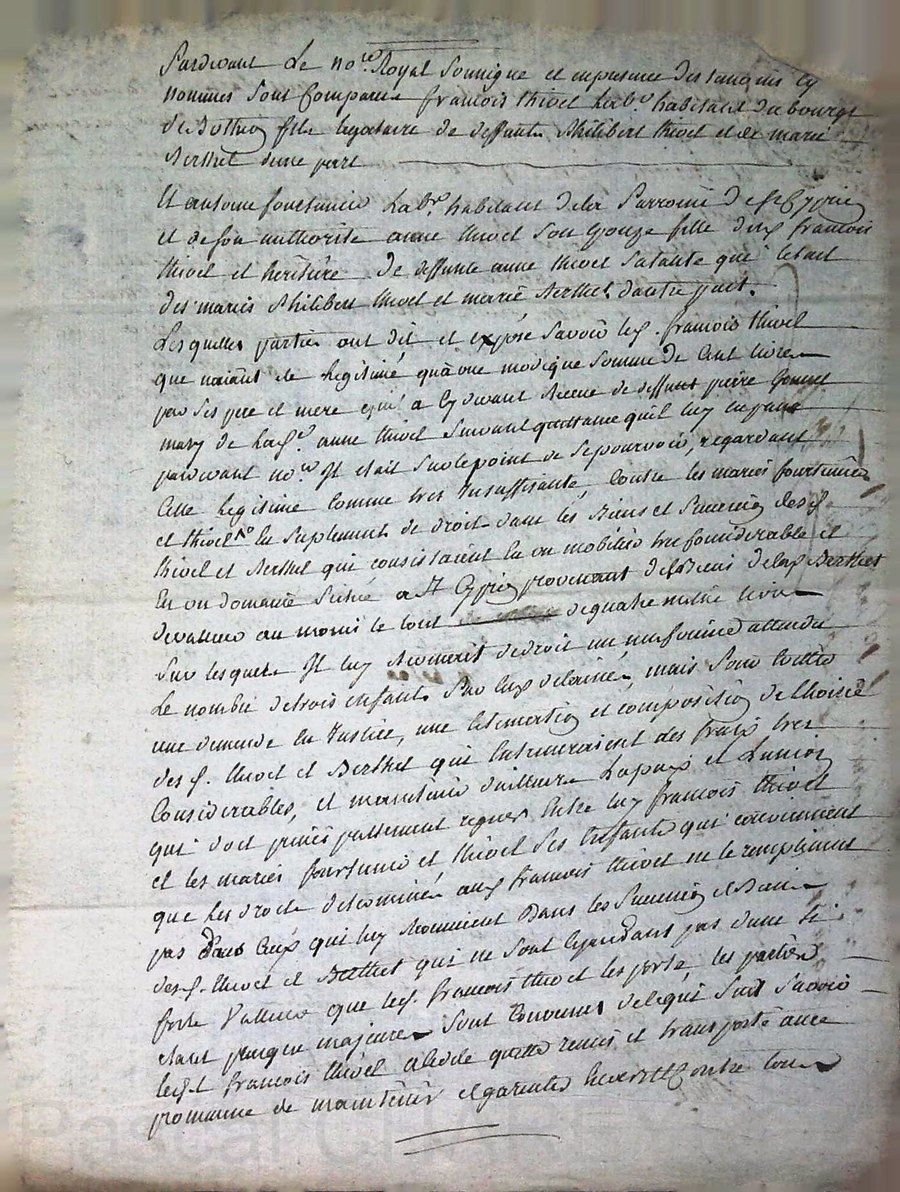 Pardevant Le no.re Royal Soussigne et en presence des temoins cy
nommes Sont Comparus francois thivel Lab.r habitant du bourgt
de fils legataire de deffunts Philibert thivel et de marie
Berthet d'une part
Et antoine Lab.r habitant dela Parroisse de st Cyprie
et de son authorite anne thivel son Epouze fille dud francois
thivel et heritiere de deffunte anne thivel sa tante qui letait
des maries Philibert thivel et marie Berthet d'autre part.
Lesquelles parties ont dit et expose savoir led. francois thivel
que naiant ete legitimé qu'a une modique somme de Cent livres
par ses pere et mere qu'il a cy devant Receue de deffunt pierre
mary de lad.e anne thivel suivant quittance qu'il luy en passa
pardevant no.re Il etait sur le point de se pourvoir, regardant
Cette legitime comme tres Insuffisante, Contre les maries
et thivel En suplement de droit dans les Biens et Succession desd
thivel et Berthet qui consistaient En un mobilier tres Considerable et
En un domaine Scitué a St Cyprie provenant des Biens delad Berthet
devalleur au moins le tout de quatre mille livres
Sur lesquels Il luy de droit un attendu
Le nombre de trois enfants par Eux delaissés, mais pour Eviter
une demande En Justice, une Estimation et composition de Lhoirie
desd. thivel et Berthet qui Entraineraient des fraix tres
Considerables, et maintenir d'ailleurs La paix et L'union
qui doit principallement regner Entre luy francois thivel
et les maries et thivel ses Enfants qui conviennent
que les droits determinés aud francois thivel ne le remplissent
pas dans Ceux qui luy Reviennent Dans les Succession et Biens
desd. thivel et Berthet qui ne sont Cependant pas d'une si
forte Valleur que led. francois thivel les porte, les parties
etant presque majeures sont Convenues de ce qui Suit Savoir
led.t francois thivel a Cedé quitté remis et transporté avec
promesse de maintenir et garentir Envers et Contre tous